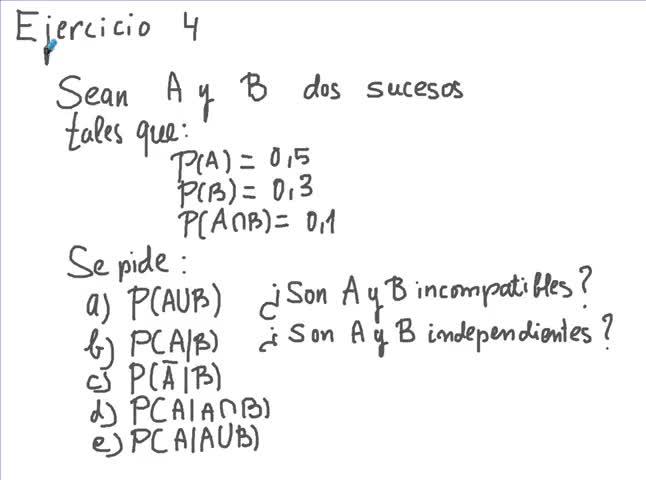 Ejercicio 4
Sean A y B dos sucesos
tales que:
P(A) = 0,5
P(B) = 0,3
P(A∩B) = 0,1
Se pide:
a) P(A∪B) ¿Son A y B incompatibles?
b) P(A|B) ¿Son A y B independientes?
c) P(Ā|B)
d) P(A|A∩B)
e) P(A|A∪B)